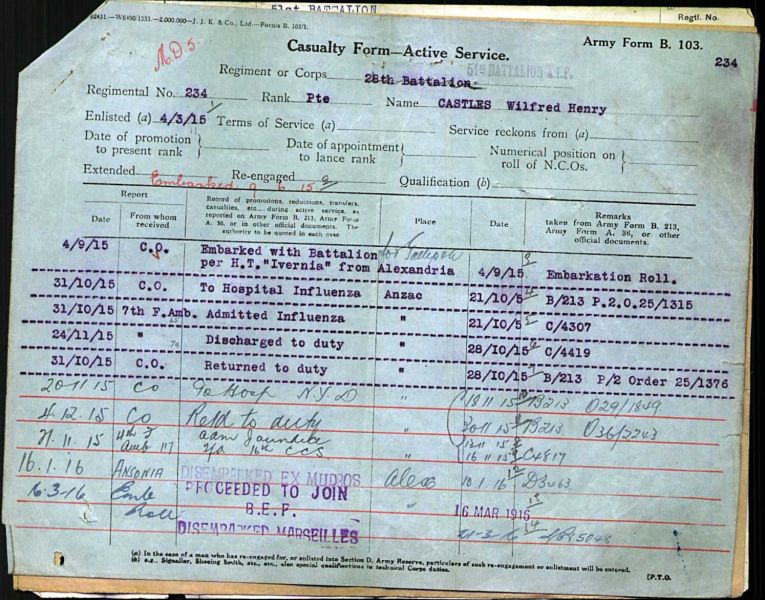 51st BATTALION
Regtl. No.
92431.—W6490/1535.—2,000,000—J. J. K. & Co., Ltd.—Forms B. 103/1.
M.D.5
Casualty Form—Active Service.
Army Form B. 103.
234
51st BATTALION A.I.F.
Regiment or Corps 28th Battalion
Regimental No. 234 Rank Pte Name CASTLES Wilfred Henry
Enlisted (a) 4/3/15 Terms of Service (a) Service reckons from (a)
Date of promotion to present rank } Date of appointment to lance rank } Numerical position on roll of N.C.Os. }
Extended Re-engaged Qualification (b)
Embarked 9 6 15
Report
Date From whom received
Record of promotions, reductions, transfers, casualties, etc., during active service, as reported on Army Form B. 213, Army Form A. 36, or in other official documents. The authority to be quoted in each case.
Place
Date
Remarks taken from Army Form B. 213, Army Form A. 36, or other official documents.
4/9/15 C.O. Embarked with Battalion for Gallipoli
per H.T."Ivernia" from Alexandria 4/9/15 Embarkation Roll.
31/10/15 C.O. To Hospital Influenza Anzac 21/10/5 B/213 P.2.0.25/1315
31/10/15 7th F.Amb. Admitted Influenza " 21/10/5 C/4307
24/11/15 " Discharged to duty " 28/10/15 C/4419
31/10/15 C.O. Returned to duty " 28/10/15 B/213 P/2 Order 25/1376
20 11 15 CO To Hosp N.Y.D " 13 11 15 B213 O29/1859
4.12.15 CO Retd to duty " 30 11 15 B213 O36/2243
27.11.15 4th F Amb adm Jaundice 13 11 15
16th C.C.S. 16 11 15 C4817
16.1.16 ANSONIA DISEMBARKED EX MUDROS Alex 10.1.16 D3463
16-3-16 Emb Roll PROCEEDED TO JOIN B.E.F. " 16 MAR 1916
DISEMBARKED MARSEILLES 21-3-16
(a) In the case of a man who has re-engaged for, or enlisted into Section D, Army Reserve, particulars of such re-engagement or enlistment will be entered.
(b) e.g., Signaller, Shoeing Smith, etc., etc., also special qualifications in technical Corps duties.
[P.T.O.